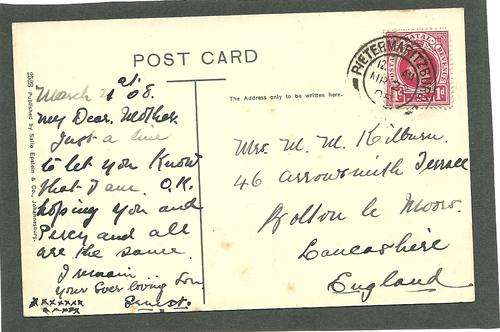 POST CARD
PIETERMARITZBURG
NATAL
1d
March 21st 08.
My Dear Mother
Just a line
to let you know
that I am O.K.
hoping you and
Percy and all
are the same.
I remain
your Ever loving Son
Ernest.
xxxxxxx
xxxxx
The Address only to be written here.
Mrs. M. M. Kilburn
46 Arrowsmith Terrace
Bolton le Moors.
Lancashire
England
Published by Sallo Epstein & Co., Johannesburg.